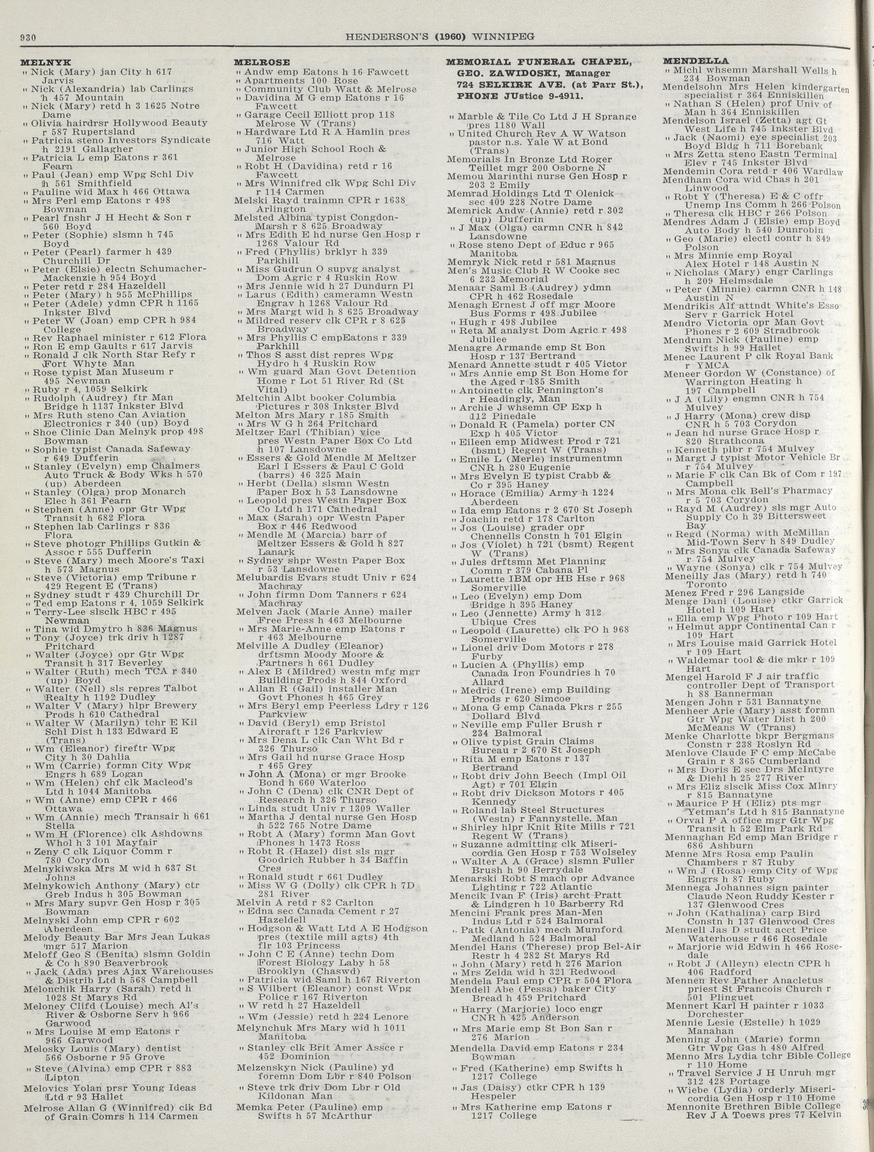 930
HENDERSON'S (1960) WINNIPEG
MELNYK
" Nick (Mary) jan City h 617
Jarvis
" Nick (Alexandria) lab Carlings
h 457 Mountain
" Nick (Mary) retd h 3 1625 Notre
Dame
" Olivia hairdrsr Hollywood Beauty
r 587 Rupertsland
" Patricia steno Investors Syndicate
h 2191 Gallagher
" Patricia L emp Eatons r 361
Fearn
" Paul (Jean) emp Wpg Schl Div
h 561 Smithfield
" Pauline wid Max h 466 Ottawa
" Mrs Perl emp Eatons r 498
Bowman
" Pearl fnshr J H Hecht & Son r
560 Boyd
" Peter (Sophie) slsmn h 745
Boyd
" Peter (Pearl) farmer h 439
Churchill Dr
" Peter (Elsie) electn Schumacher-
Mackenzie h 954 Boyd
" Peter retd r 284 Hazeldell
" Peter (Mary) h 955 McPhillips
" Peter (Adele) ydmn CPR h 1165
Inkster Blvd
" Peter W (Joan) emp CPR h 984
College
" Rev Raphael minister r 612 Flora
" Ron E emp Gaults r 617 Jarvis
" Ronald J clk North Star Refy r
Fort Whyte Man
" Rose typist Man Museum r
495 Newman
" Ruby r 4, 1059 Selkirk
" Rudolph (Audrey) ftr Man
Bridge h 1137 Inkster Blvd
" Mrs Ruth steno Can Aviation
Electronics r 340 (up) Boyd
" Shoe Clinic Dan Melnyk prop 498
Bowman
" Sophie typist Canada Safeway
r 649 Dufferin
" Stanley (Evelyn) emp Chalmers
Auto Truck & Body Wks h 570
(up) Aberdeen
" Stanley (Olga) prop Monarch
Elec h 361 Fearn
" Stephen (Anne) opr Gtr Wpg
Transit h 682 Flora
" Stephen lab Carlings r 836
Flora
" Steve photogr Phillips Gutkin &
Assoc r 555 Dufferin
" Steve (Mary) mech Moore's Taxi
h 573 Magnus
" Steve (Victoria) emp Tribune r
429 Regent E (Trans)
" Sydney studt r 439 Churchill Dr
" Ted emp Eatons r 4, 1059 Selkirk
" Terry-Lee slsclk HBC r 495
Newman
" Tina wid Dmytro h 836 Magnus
" Tony (Joyce) trk driv h 1287
Pritchard
" Walter (Joyce) opr Gtr Wpg
Transit h 317 Beverley
" Walter (Ruth) mech TCA r 340
(up) Boyd
" Walter (Nell) sls repres Talbot
Realty h 1192 Dudley
" Walter V (Mary) hlpr Brewery
Prods h 610 Cathedral
" Walter W (Marilyn) tchr E Kil
Schl Dist h 133 Edward E
(Trans)
" Wm (Eleanor) fireftr Wpg
City h 30 Dahlia
" Wm (Carrie) formn City Wpg
Engrs h 689 Logan
" Wm (Helen) chf clk Macleod's
Ltd h 1044 Manitoba
" Wm (Anne) emp CPR r 466
Ottawa
" Wm (Annie) mech Transair h 661
Stella
" Wm H (Florence) clk Ashdowns
Whol h 3 101 Mayfair
" Zeny C clk Liquor Comm r
780 Corydon
Melnykiwska Mrs M wid h 637 St
Johns
Melnykowich Anthony (Mary) ctr
Greb Indus h 305 Bowman
" Mrs Mary supvr Gen Hosp r 305
Bowman
Melnyski John emp CPR r 602
Aberdeen
Melody Beauty Bar Mrs Jean Lukas
mgr 517 Marion
Meloff Geo S (Benita) slsmn Goldin
& Co h 890 Beaverbrook
" Jack (Ada) pres Ajax Warehouses
& Distrib Ltd h 568 Campbell
Melonchik Harry (Sarah) retd h
1028 St Marys Rd
Meloney Clifd (Louise) mech Al's
River & Osborne Serv h 966
Garwood
" Mrs Louise M emp Eatons r
966 Garwood
Melosky Louis (Mary) dentist
566 Osborne r 95 Grove
" Steve (Alvina) emp CPR r 883
Lipton
Melovics Yolan prsr Young Ideas
Ltd r 93 Hallet
Melrose Allan G (Winnifred) clk Bd
of Grain Comrs h 114 Carmen
MELROSE
" Andw emp Eatons h 16 Fawcett
" Apartments 100 Rose
" Community Club Watt & Melrose
" Davidina M G emp Eatons r 16
Fawcett
" Garage Cecil Elliott prop 118
Melrose W (Trans)
" Hardware Ltd R A Hamlin pres
716 Watt
" Junior High School Roch &
Melrose
" Robt H (Davidina) retd r 16
Fawcett
" Mrs Winnifred clk Wpg Schl Div
r 114 Carmen
Melski Rayd trainmn CPR r 1638
Arlington
Melsted Albina typist Congdon-
Marsh r 8 625 Broadway
" Mrs Edith E hd nurse Gen Hosp r
1268 Valour Rd
" Fred (Phyllis) brklyr h 339
Parkhill
" Miss Gudrun O supvg analyst
Dom Agric r 4 Ruskin Row
" Mrs Jennie wid h 27 Dundurn Pl
" Larus (Edith) cameramn Westn
Engrav h 1268 Valour Rd
" Mrs Margt wid h 8 625 Broadway
" Mildred reserv clk CPR r 8 625
Broadway
" Mrs Phyllis C empEatons r 339
Parkhill
" Thos S asst dist repres Wpg
Hydro h 4 Ruskin Row
" Wm guard Man Govt Detention
Home r Lot 51 River Rd (St
Vital)
Meltchin Albt booker Columbia
Pictures r 308 Inkster Blvd
Melton Mrs Mary r 185 Smith
" Mrs W G h 264 Pritchard
Meltzer Earl (Thibian) vice
pres Westn Paper Box Co Ltd
h 107 Lansdowne
" Essers & Gold Mendle M Meltzer
Earl I Essers & Paul C Gold
(barrs) 46 325 Main
" Herbt (Della) slsmn Westn
Paper Box h 53 Lansdowne
" Leopold pres Westn Paper Box
Co Ltd h 171 Cathedral
" Max (Sarah) opr Westn Paper
Box r 446 Redwood
" Mendle M (Marcia) barr of
Meltzer Essers & Gold h 827
Lanark
" Sydney shpr Westn Paper Box
r 53 Lansdowne
Melubardis Evars studt Univ r 624
Machray
" John firmn Dom Tanners r 624
Machray
Melven Jack (Marie Anne) mailer
Free Press h 463 Melbourne
" Mrs Marie-Anne emp Eatons r
r 463 Melbourne
Melville A Dudley (Eleanor)
drftsmn Moody Moore &
Partners h 661 Dudley
" Alex B (Mildred) westn mfg mgr
Building Prods h 844 Oxford
" Allan R (Gail) installer Man
Govt Phones h 465 Grey
" Mrs Beryl emp Peerless Ldry r 126
Parkview
" David (Beryl) emp Bristol
Aircraft r 126 Parkview
" Mrs Dena L clk Can Wht Bd r
326 Thurso
" Mrs Gail hd nurse Grace Hosp
r 465 Grey
" John A (Mona) cr mgr Brooke
Bond h 660 Waterloo
" John C (Dena) clk CNR Dept of
Research h 326 Thurso
" Linda studt Univ r 1309 Waller
" Martha J dental nurse Gen Hosp
h 522 765 Notre Dame
" Robt A (Mary) formn Man Govt
Phones h 1473 Ross
" Robt R (Hazel) dist sls mgr
Goodrich Rubber h 34 Baffin
Cres
" Ronald studt r 661 Dudley
" Miss W G (Dolly) clk CPR h 7D
281 River
Melvin A retd r 82 Carlton
" Edna sec Canada Cement r 27
Hazeldell
" Hodgson & Watt Ltd A E Hodgson
pres (textile mill agts) 4th
flr 103 Princess
" John C E (Anne) techn Dom
Forest Biology Laby h 58
Brooklyn (Chaswd)
" Patricia wid Saml h 167 Riverton
" S Wilbert (Eleanor) const Wpg
Police r 167 Riverton
" W retd h 27 Hazeldell
" Wm (Jessie) retd h 224 Lenore
Melynchuk Mrs Mary wid h 1011
Manitoba
" Stanley clk Brit Amer Assce r
452 Dominion
Melzenskyn Nick (Pauline) yd
foremn Dom Lbr r 840 Polson
" Steve trk driv Dom Lbr r Old
Kildonan Man
Memka Peter (Pauline) emp
Swifts h 57 McArthur
MEMORIAL FUNERAL CHAPEL,
GEO. ZAWIDOSKI, Manager
724 SELKIRK AVE. (at Parr St.),
PHONE JUstice 9-4911.
" Marble & Tile Co Ltd J H Sprange
pres 1180 Wall
" United Church Rev A W Watson
pastor n.s. Yale W at Bond
(Trans)
Memorials In Bronze Ltd Roger
Teillet mgr 200 Osborne N
Memou Marinthi nurse Gen Hosp r
203 2 Emily
Memrad Holdings Ltd T Olenick
sec 409 228 Notre Dame
Memrick Andw (Annie) retd r 302
(up) Dufferin
" J Max (Olga) carmn CNR h 842
Lansdowne
" Rose steno Dept of Educ r 965
Manitoba
Memryk Nick retd r 581 Magnus
Men's Music Club R W Cooke sec
6 232 Memorial
Menaar Saml B (Audrey) ydmn
CPR h 462 Rosedale
Menagh Ernest J off mgr Moore
Bus Forms r 498 Jubilee
" Hugh r 498 Jubilee
" Reta M analyst Dom Agric r 498
Jubilee
Menagre Armande emp St Bon
Hosp r 137 Bertrand
Menard Annette studt r 405 Victor
" Mrs Annie emp St Bon Home for
the Aged r 185 Smith
" Antoinette clk Pennington's
r Headingly, Man
" Archie J whsemn CP Exp h
412 Pinedale
" Donald R (Pamela) porter CN
Exp h 405 Victor
" Eileen emp Midwest Prod r 721
(bsmt) Regent W (Trans)
" Emile L (Merle) instrumentmn
CNR h 280 Eugenie
" Mrs Evelyn E typist Crabb &
Co r 395 Haney
" Horace (Emilia) Army h 1224
Aberdeen
" Ida emp Eatons r 2 670 St Joseph
" Joachin retd r 178 Carlton
" Jos (Louise) grader opr
Chennells Constn h 701 Elgin
" Jos (Violet) h 721 (bsmt) Regent
W (Trans)
" Jules drftsmn Met Planning
Comm r 379 Cabana Pl
" Laurette IBM opr HB Hse r 968
Somerville
" Leo (Evelyn) emp Dom
Bridge h 395 Haney
" Leo (Jennette) Army h 312
Ubique Cres
" Leopold (Laurette) clk PO h 968
Somerville
" Lionel driv Dom Motors r 278
Furby
" Lucien A (Phyllis) emp
Canada Iron Foundries h 70
Allard
" Medric (Irene) emp Building
Prods r 620 Simcoe
" Mona G emp Canada Pkrs r 255
Dollard Blvd
" Neville emp Fuller Brush r
234 Balmoral
" Olive typist Grain Claims
Bureau r 2 670 St Joseph
" Rita M emp Eatons r 137
Bertrand
" Robt driv John Beech (Impl Oil
Agt) r 701 Elgin
" Robt driv Dickson Motors r 405
Kennedy
" Roland lab Steel Structures
(Westn) r Fannystelle, Man
" Shirley hlpr Knit Rite Mills r 721
Regent W (Trans)
" Suzanne admitting clk Miseri-
cordia Gen Hosp r 753 Wolseley
" Walter A A (Grace) slsmn Fuller
Brush h 90 Berrydale
Menarski Robt S mach opr Advance
Lighting r 722 Atlantic
Mencik Ivan F (Iris) archt Pratt
& Lindgren h 10 Barberry Rd
Mencini Frank pres Man-Men
Indus Ltd r 524 Balmoral
" Patk (Antonia) mech Mumford
Medland h 524 Balmoral
Mendel Hans (Therese) prop Bel-Air
Restr h 4 282 St Marys Rd
" John (Mary) retd h 276 Marion
" Mrs Zelda wid h 321 Redwood
Mendela Paul emp CPR r 504 Flora
Mendell Abe (Pessa) baker City
Bread h 459 Pritchard
" Harry (Marjorie) loco engr
CNR h 425 Anderson
" Mrs Marie emp St Bon San r
276 Marion
Mendella David emp Eatons r 234
Bowman
" Fred (Katherine) emp Swifts h
1217 College
" Jas (Daisy) ctkr CPR h 139
Hespeler
" Mrs Katherine emp Eatons r
1217 College
MENDELLA
" Michl whsemn Marshall Wells h
234 Bowman
Mendelsohn Mrs Helen kindergarten
specialist r 364 Enniskillen
" Nathan S (Helen) prof Univ of
Man h 364 Enniskillen
Mendelson Israel (Zetta) agt Gt
West Life h 745 Inkster Blvd
" Jack (Naomi) eye specialist 203
Boyd Bldg h 711 Borebank
" Mrs Zetta steno Eastn Terminal
Elev r 745 Inkster Blvd
Mendemin Cora retd r 406 Wardlaw
Mendham Cora wid Chas h 201
Linwood
" Robt Y (Theresa) E & C offr
Unemp Ins Comm h 266 Polson
" Theresa clk HBC r 266 Polson
Mendres Adam J (Elsie) emp Boyd
Auto Body h 540 Dunrobin
" Geo (Marie) electl contr h 849
Polson
" Mrs Minnie emp Royal
Alex Hotel r 148 Austin N
" Nicholas (Mary) engr Carlings
h 209 Helmsdale
" Peter (Minnie) carmn CNR h 148
Austin N
Mendrikis Alf attndt White's Esso
Serv r Garrick Hotel
Mendro Victoria opr Man Govt
Phones r 2 609 Stradbrook
Mendrum Nick (Pauline) emp
Swifts h 99 Hallet
Menec Laurent P clk Royal Bank
r YMCA
Meneer Gordon W (Constance) of
Warrington Heating h
197 Campbell
" J A (Lily) engmn CNR h 754
Mulvey
" J Harry (Mona) crew disp
CNR h 5 703 Corydon
" Jean hd nurse Grace Hosp r
820 Strathcona
" Kenneth plbr r 754 Mulvey
" Margt J typist Motor Vehicle Br
r 754 Mulvey
" Marie F clk Can Bk of Com r 197
Campbell
" Mrs Mona clk Bell's Pharmacy
r 5 703 Corydon
" Rayd M (Audrey) sls mgr Auto
Supply Co h 39 Bittersweet
Bay
" Regd (Norma) with McMillan
Mid-Town Serv h 849 Dudley
" Mrs Sonya clk Canada Safeway
r 754 Mulvey
" Wayne (Sonya) clk r 754 Mulvey
Meneilly Jas (Mary) retd h 740
Toronto
Menez Fred r 296 Langside
Menge Danl (Louise) ctkr Garrick
Hotel h 109 Hart
" Ella emp Wpg Photo r 109 Hart
" Helmut appr Continental Can r
109 Hart
" Mrs Louise maid Garrick Hotel
r 109 Hart
" Waldemar tool & die mkr r 109
Hart
Mengel Harold F J air traffic
controller Dept of Transport
h 88 Bannerman
Mengen John r 531 Bannatyne
Menheer Arie (Mary) asst formn
Gtr Wpg Water Dist h 200
McMeans W (Trans)
Menke Charlotte bkpr Bergmans
Constn r 238 Roslyn Rd
Menlove Claude F C emp McCabe
Grain r 8 365 Cumberland
" Mrs Doris E sec Drs McIntyre
& Diehl h 25 277 River
" Mrs Eliz slsclk Miss Cox Mlnry
r 815 Bannatyne
" Maurice P H (Eliz) pts mgr
Yetman's Ltd h 815 Bannatyne
" Orval P A office mgr Gtr Wpg
Transit h 52 Elm Park Rd
Mennaghan Ed emp Man Bridge r
686 Ashburn
Menne Mrs Rosa emp Paulin
Chambers r 87 Ruby
" Wm J (Rosa) emp City of Wpg
Engrs h 87 Ruby
Mennega Johannes sign painter
Claude Neon Ruddy Kester r
137 Glenwood Cres
" John (Kathalina) carp Bird
Constn h 137 Glenwood Cres
Mennell Jas D studt acct Price
Waterhouse r 466 Rosedale
" Marjorie wid Edwin h 466 Rose-
dale
" Robt J (Alleyn) electn CPR h
406 Radford
Mennen Rev Father Anacletus
priest St Francois Church r
501 Plinguet
Mennert Karl H painter r 1033
Dorchester
Mennie Lesie (Estelle) h 1029
Manahan
Menning John (Marie) formn
Gtr Wpg Gas h 480 Alfred
Menno Mrs Lydia tchr Bible College
r 110 Home
" Travel Service J H Unruh mgr
312 428 Portage
" Wiebe (Lydia) orderly Miseri-
cordia Gen Hosp r 110 Home
Mennonite Brethren Bible College
Rev J A Toews pres 77 Kelvin